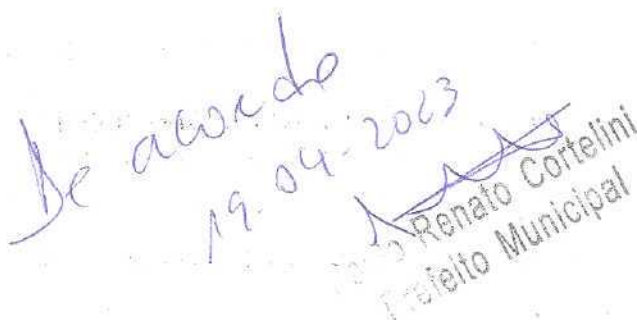 De acordo
19.04.2023
Renato Cortelini
Prefeito Municipal